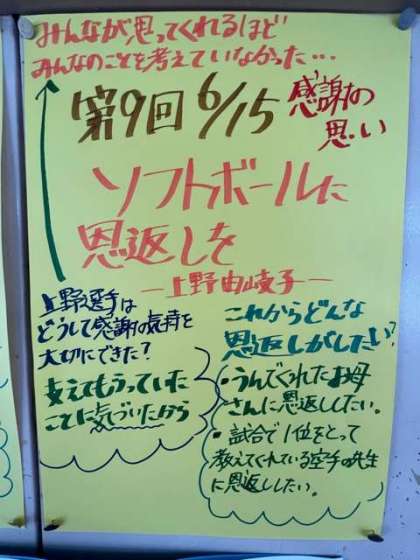 みんなが思ってくれるほど
みんなのことを考えていなかった…
第9回 6/15 感謝の
思い
ソフトボールに
恩返しを
―上野由岐子―
上野選手は
どうして感謝の気持を
大切にできた?
支えてもらっていた
ことに気づいたから
これからどんな
恩返しがしたい?
・うんでくれたお母
さんに恩返ししたい。
・試合で1位をとって
教えてくれている空手の先生
に恩返ししたい。